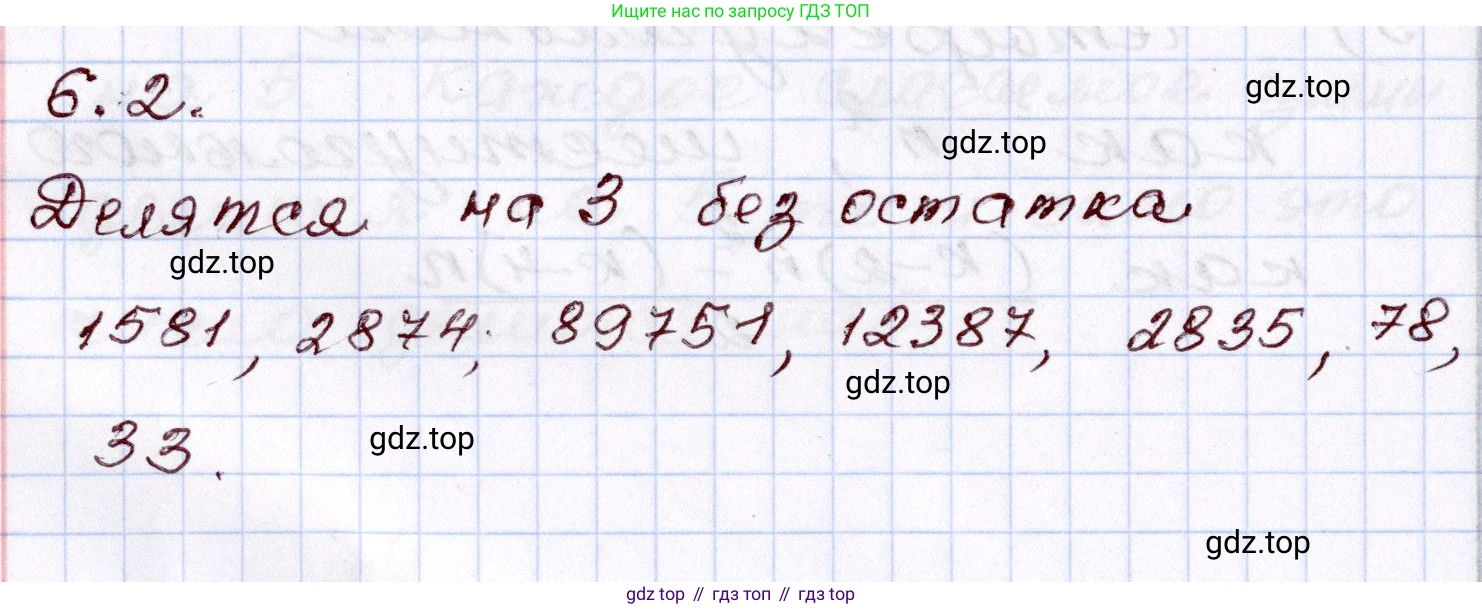 Ищите нас по запросу ГДЗ ТОП
6.2.
gdz.top
gdz.top
Делятся на 3 без остатка
gdz.top
1581, 2874, 89751, 12387, 2835, 78,
gdz.top
33.
gdz.top
gdz.top
gdz.top // гдз топ // гдз top